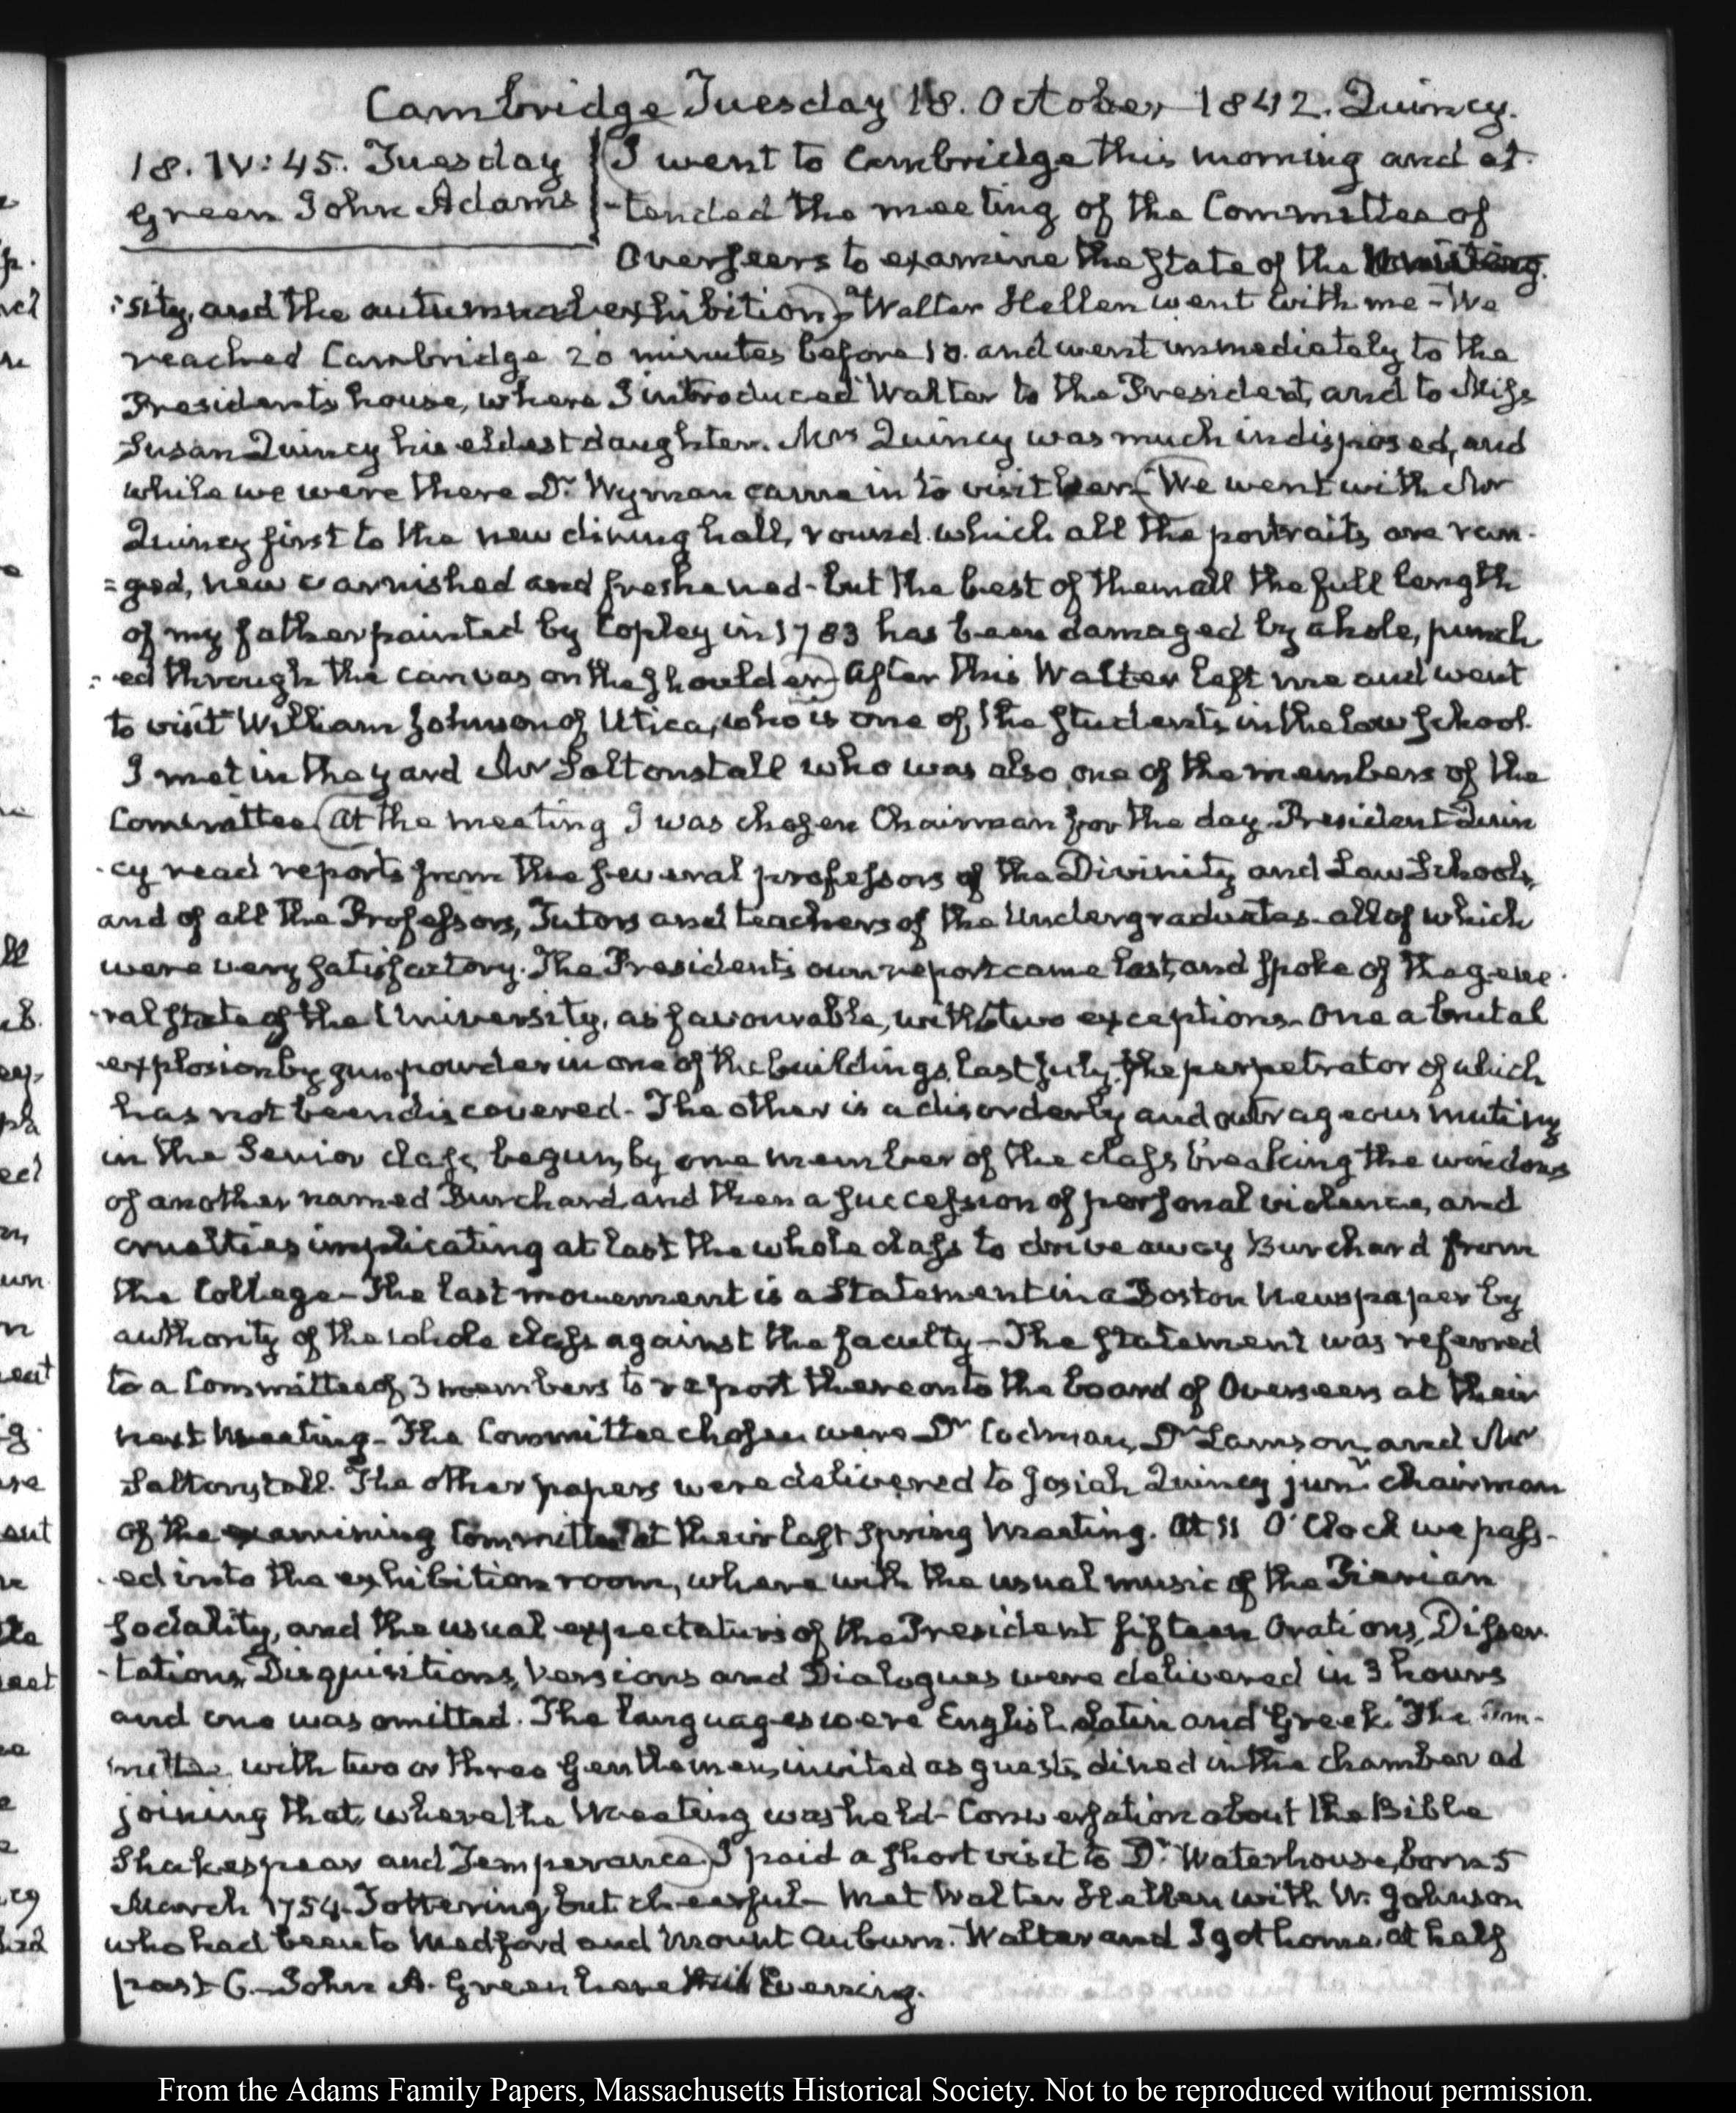 Cambridge Tuesday 18. October 1842. Quincy.
18. IV:45. Tuesday
Green John Adams
I went to Cambridge this morning and at-
-tended the meeting of the Committee of
Overseers to examine the State of the
sity, and the autumnal exhibition- Walter Hellen went with me- We
reached Cambridge 20 minutes before 10. and went immediately to the
Presidents house, where I introduced Walter to the President, and to Miss
Susan Quincy his eldest daughter. Mrs Quincy was much indisposed, and
while we were there Dr. Wyman came in to visit her- We went with Mr
Quincy first to the new dining hall, round which all the portraits are ran-
=ged, new varnished and freshened- but the best of them all the full length
of my father painted by Copley in 1783 has been damaged by a hole, punch
-ed through the canvas on the shoulder- After this Walter left me and went
to visit William Johnson of Utica, who is one of the students in the Law School.
I met in the yard Mr Saltonstall who was also one of the members of the
Committee At the meeting I was chosen Chairman for the day President Quin
-cy read reports from the several professors of the Divinity and Law Schools,
and of all the Professors, Tutors and teachers of the Undergraduates- all of which
were very satisfactory. The President's own report came last, and spoke of the gene-
-ral state of the University, as favourable, with two exceptions- One a brutal
explosion by gunpowder in one of the buildings last July, the perpetrator of which
has not been discovered- The other is a disorderly and outrageous mutiny
in the Senior class, begun, by one member of the class breaking the windows
of another named Burchard and then a succession of personal violence, and
cruelties implicating at last the whole class to drive away Burchard from
the College- The last movement is a Statement in a Boston Newspaper by
authority of the whole class against the faculty- The statement was referred
to a Committee of 3 members to report thereon to the board of Overseers at their
next Meeting- The Committee chosen were Dr Codman, Dr Lamson, and Mr
Saltonstall. The other papers were delivered to Josiah Quincy junr. chairman
of the examining Committee at their last Spring Meeting. At 11 O'Clock we pass-
-ed into the exhibition room, where with the usual music of the Pierian
Sodality, and the usual expectaturs of the President fifteen Orations, Disser-
-tations, Disquisitions, Versions and Dialogues were delivered in 3 hours
and one was omitted. The languages were English, Latin and Greek. The Com-
mittee with two or three Gentlemen, invited as guests, dined in the chamber ad
joining that, where the Meeting was held- Conversation about the Bible
Shakespear and Temperance I paid a short visit to Dr. Waterhouse, born 5
March 1754. Tottering, but cheerful- Met Walter Hellen with W. Johnson
who had been to Medford and Mount Auburn. Walter and I got home at half
past 6.- John A. Green here this Evening.
From the Adams Family Papers, Massachusetts Historical Society. Not to be reproduced without permission.